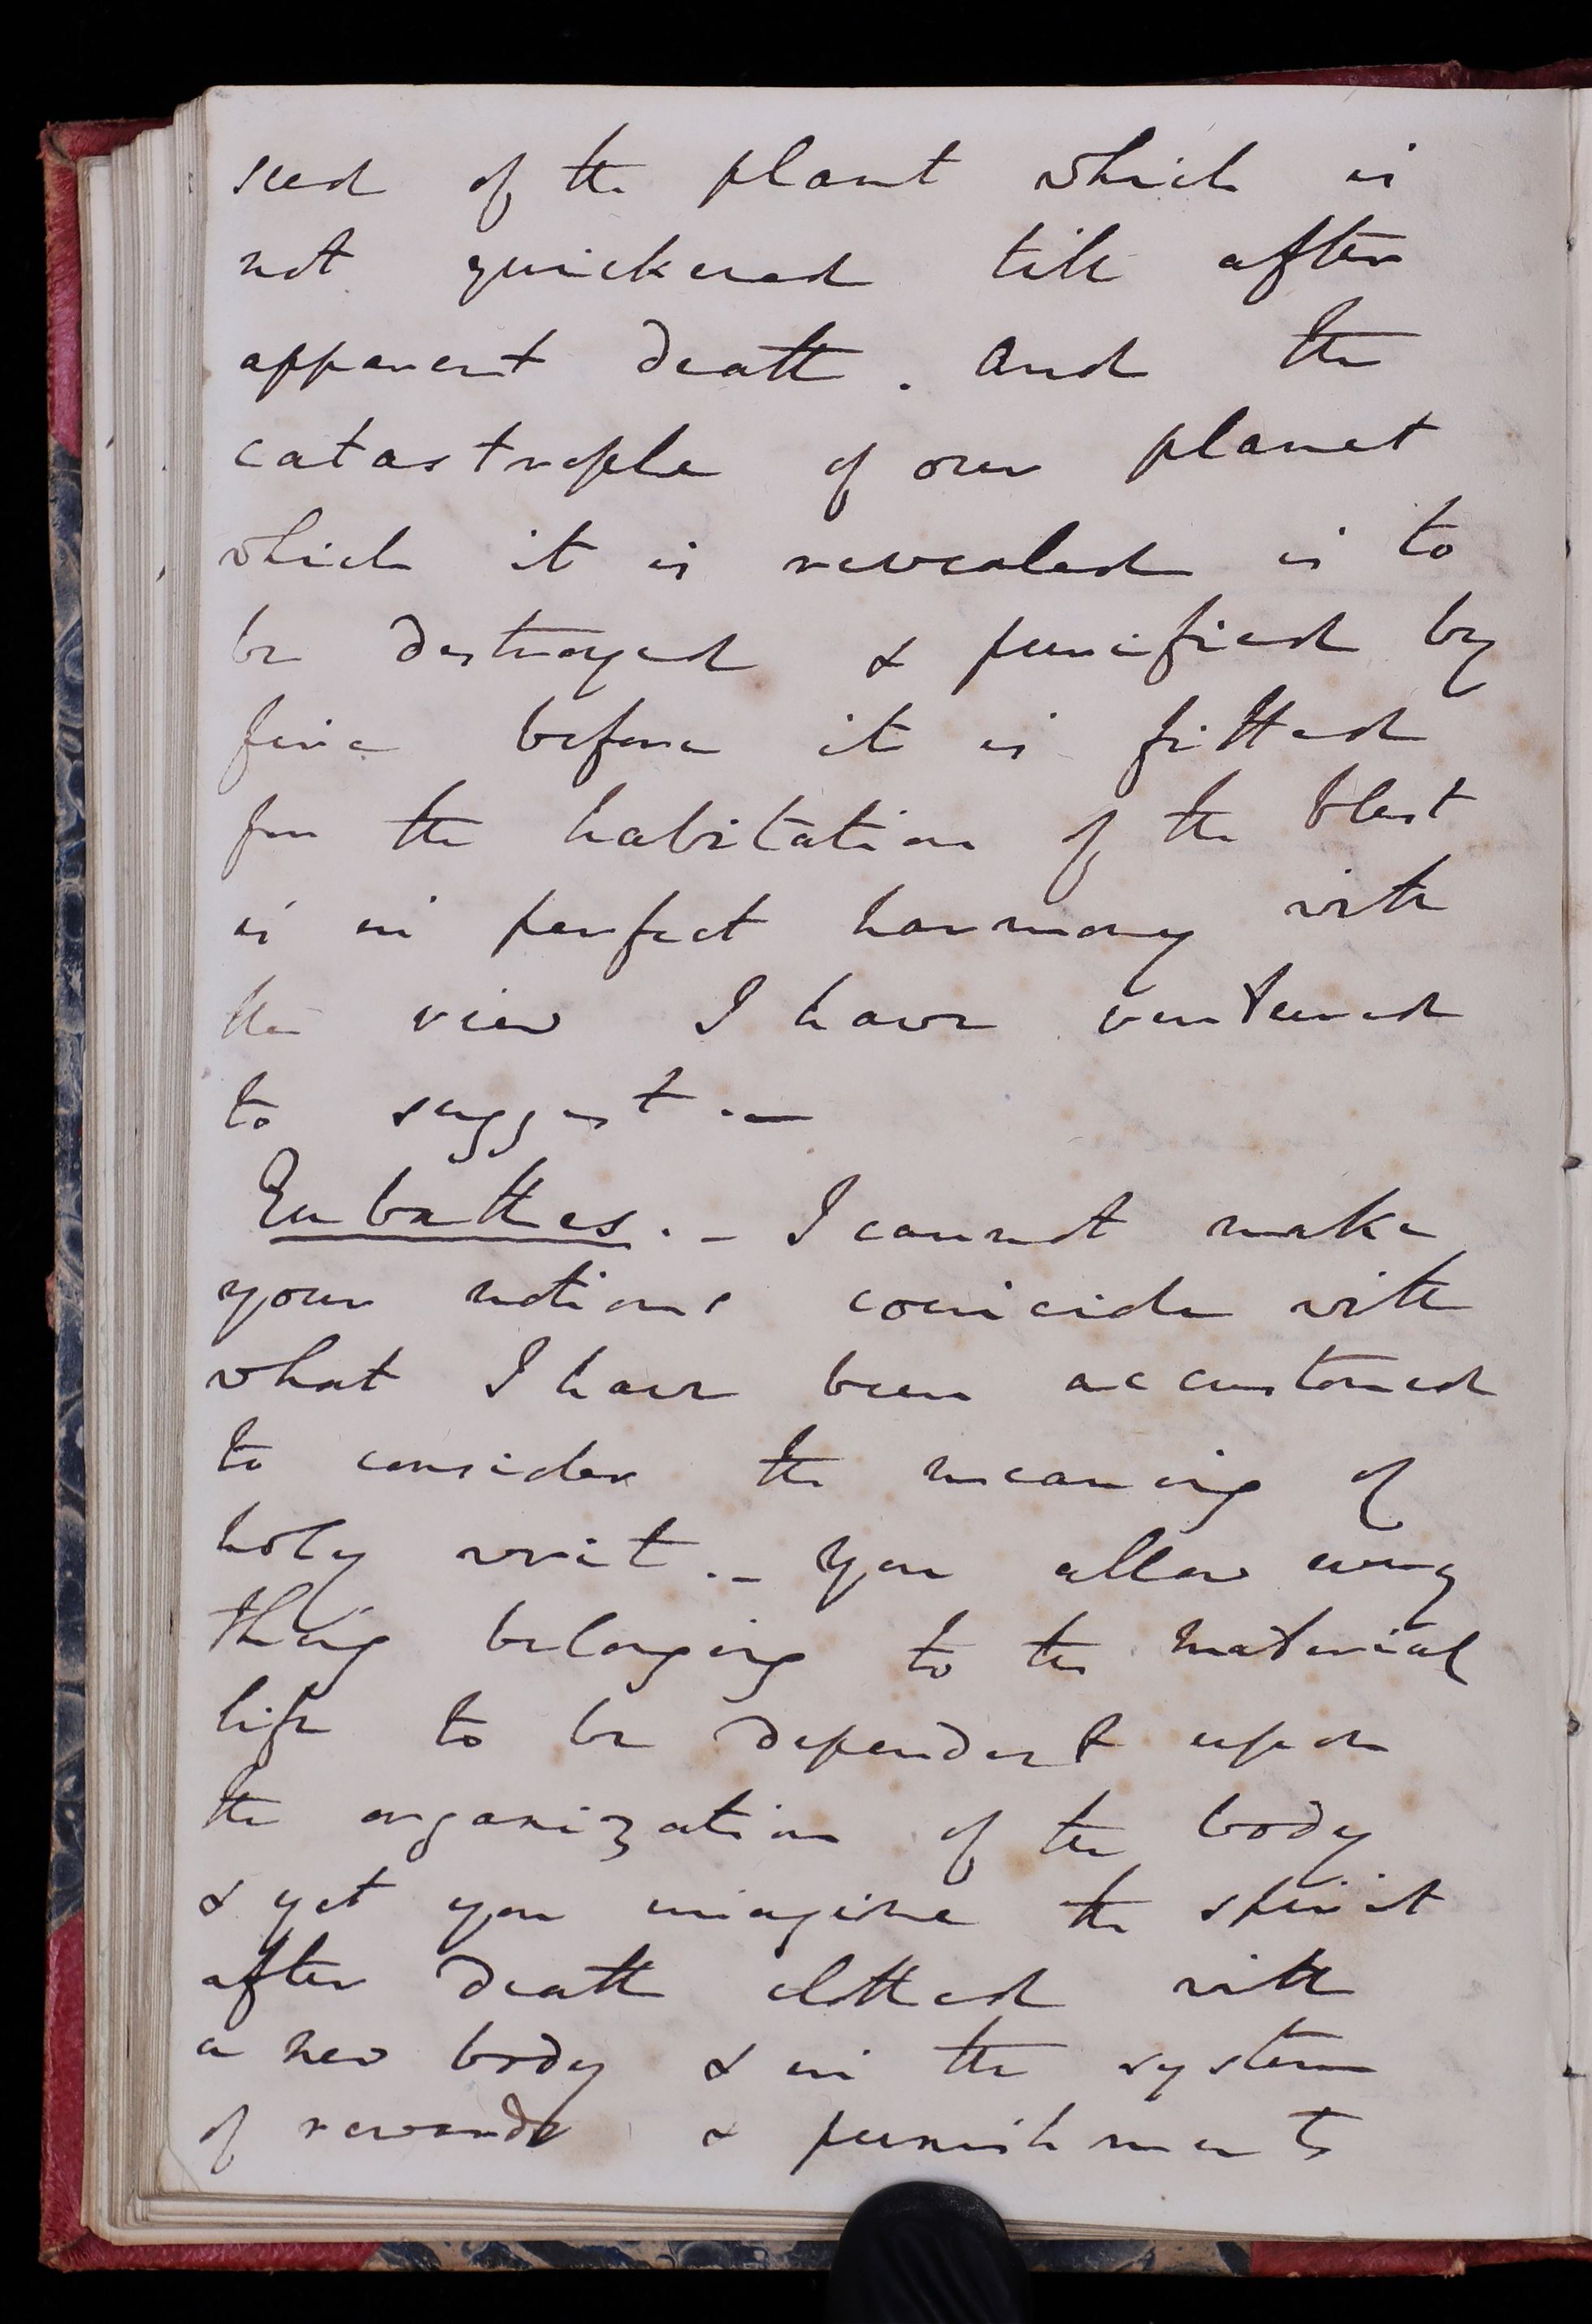 seed of the plant which is
not quickened till after
apparent death. And the
catastrophe of our planet
which it is revealed is to
be destroyed & purified by
fire before it is fitted
for the habitation of the blest
is in perfect harmony with
the view I have ventured
to suggest. —
Eubathes. — I cannot make
your notions coincide with
what I have been accustomed
to consider the meaning of
holy writ. — You allow every
thing belonging to the material
life to be dependent upon
the organization of the body
& yet you imagine the spirit
after death clothed with
a new body & in the system
of rewards & punishments